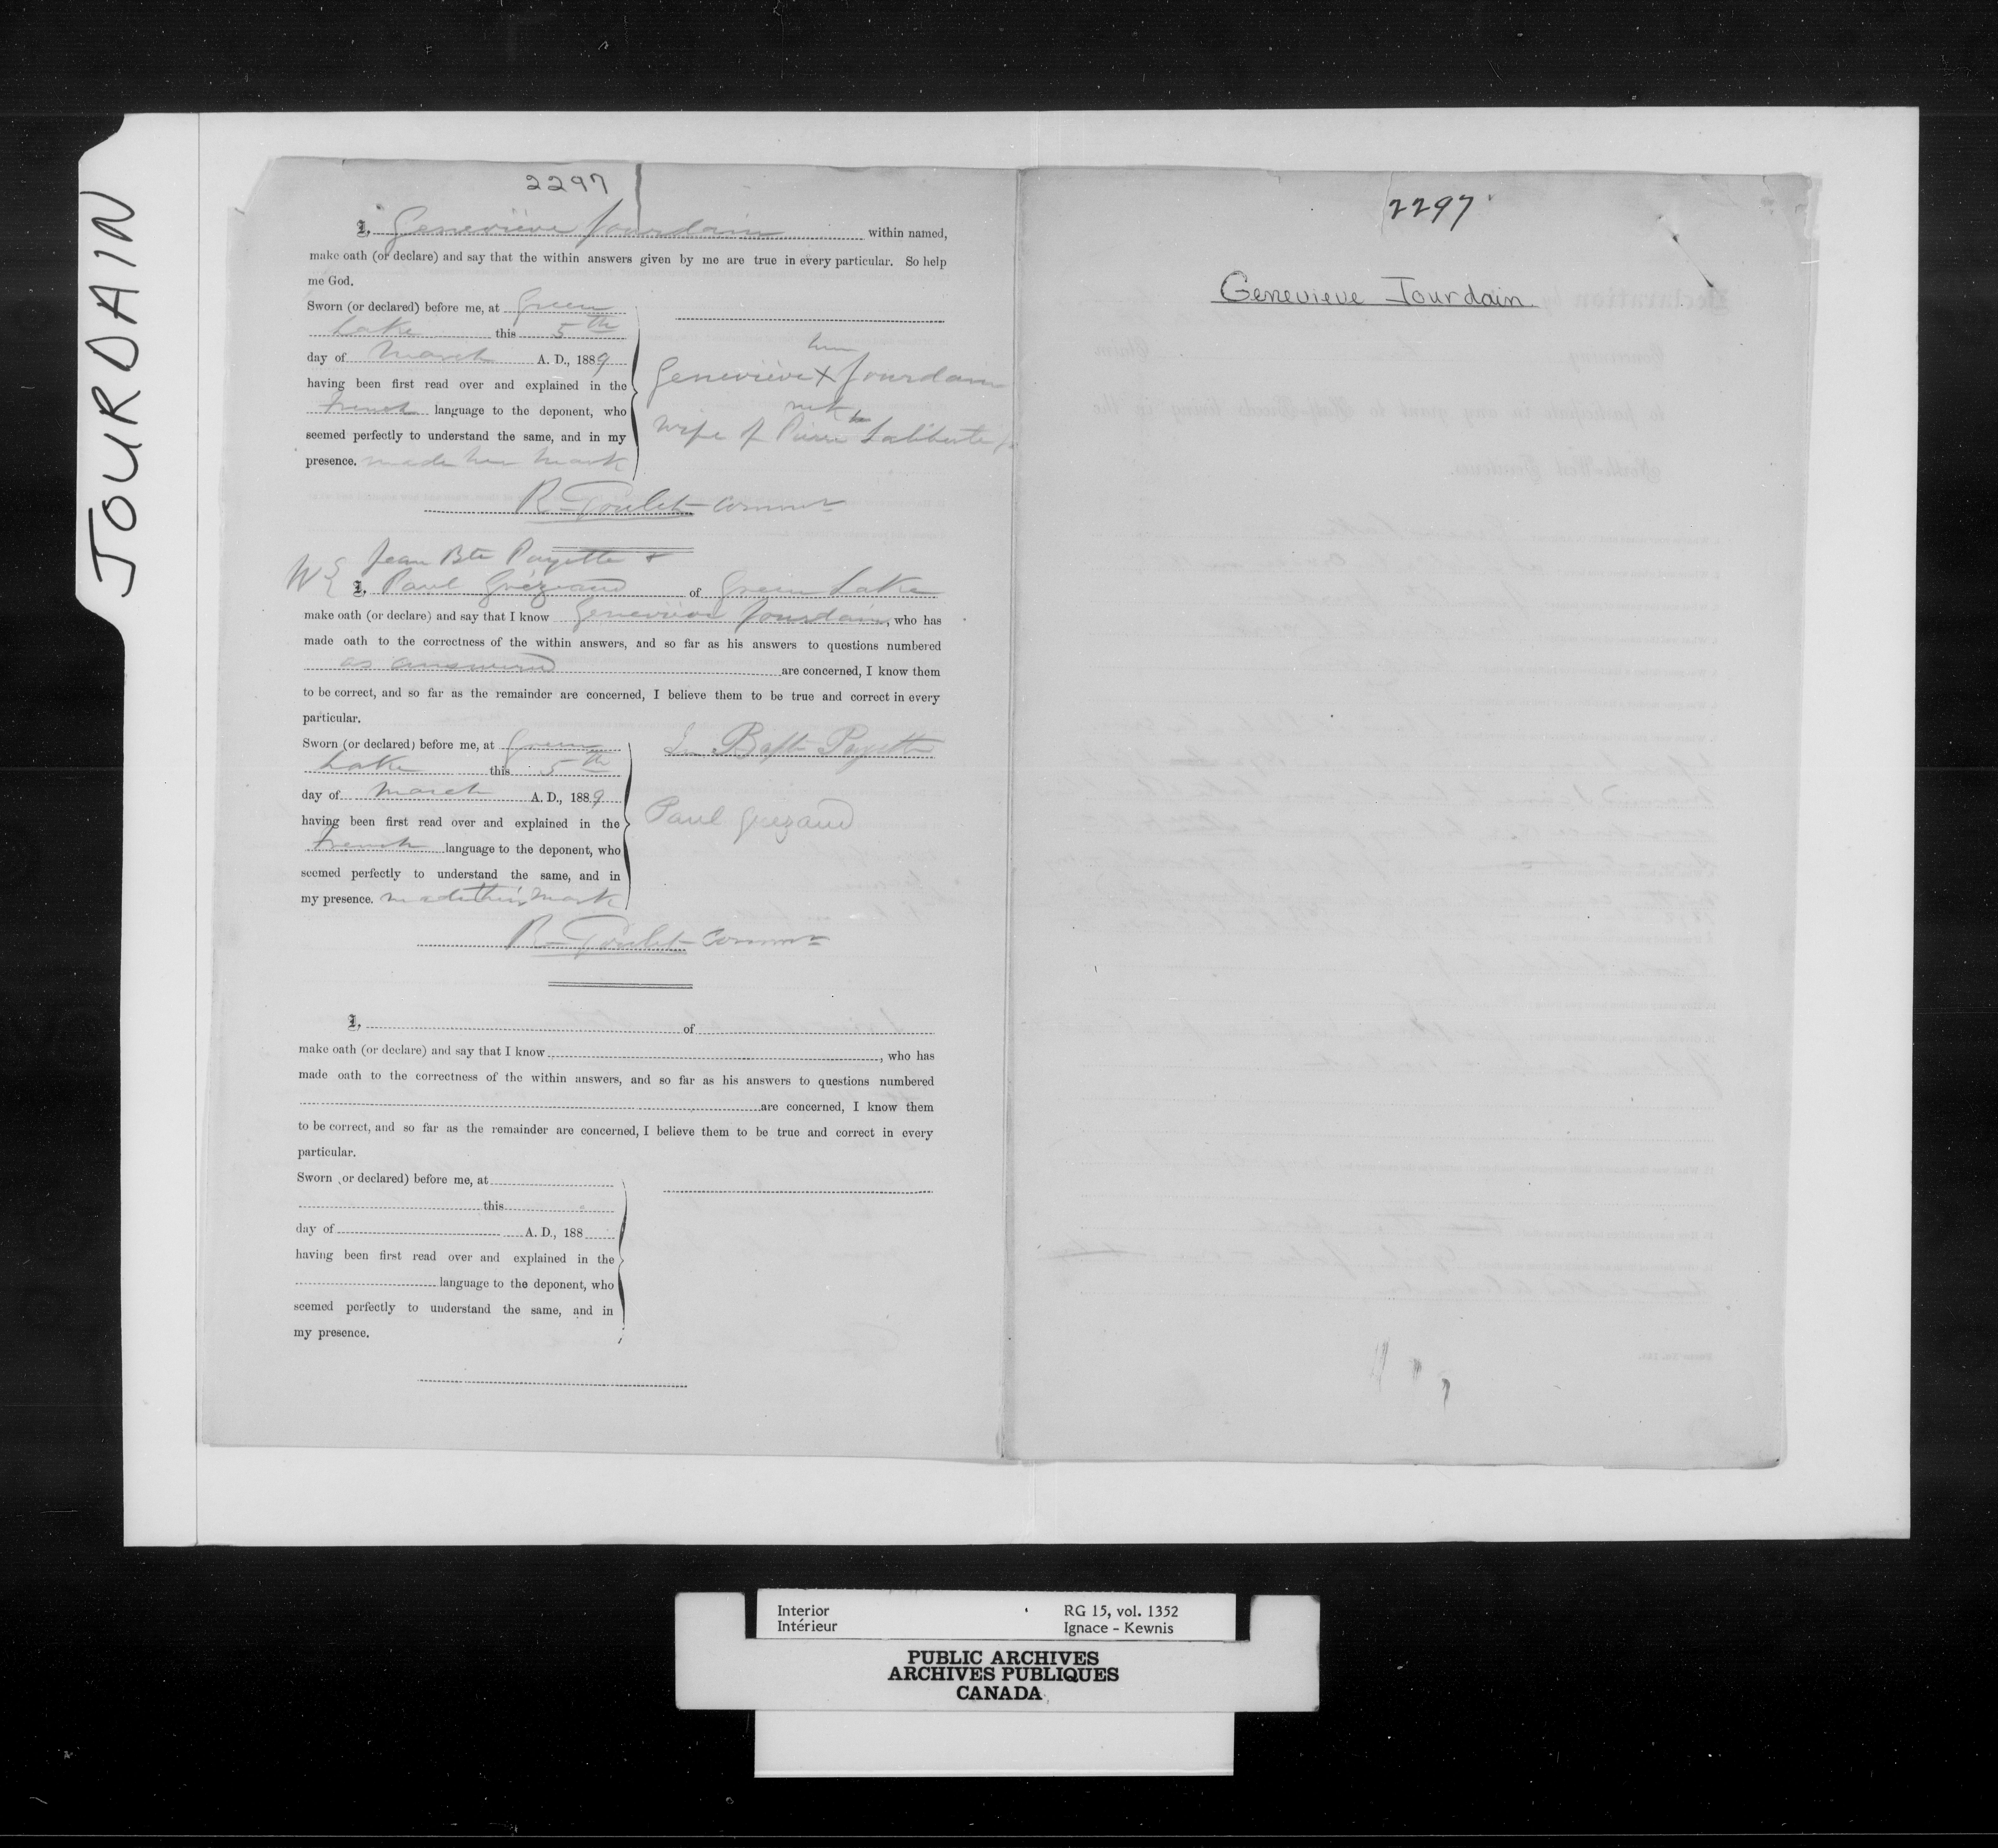 JOURDAIN
2297
I, Geneviève Jourdain within named,
make oath (or declare) and say that the within answers given by me are true in every particular. So help
me God.
Sworn (or declared) before me, at Green
Lake this 5th
day of March A. D., 1889
having been first read over and explained in the
French language to the deponent, who
seemed perfectly to understand the same, and in my
presence. made her mark
her
Geneviève X Jourdain
mk
wife of Pierre Laliberte
R. Goulet Commr
Jean Bte Payette &
We I, Paul Grézaud of Green Lake
make oath (or declare) and say that I know Geneviève Jourdain, who has
made oath to the correctness of the within answers, and so far as his answers to questions numbered
as answered are concerned, I know them
to be correct, and so far as the remainder are concerned, I believe them to be true and correct in every
particular.
Sworn (or declared) before me, at Green
Lake this 5th
day of March A. D., 1889
having been first read over and explained in the
French language to the deponent, who
seemed perfectly to understand the same, and in
my presence. made their mark
Bapt Payette
Paul Grezaud
R. Goulet Commr
I, of
make oath (or declare) and say that I know , who has
made oath to the correctness of the within answers, and so far as his answers to questions numbered
are concerned, I know them
to be correct, and so far as the remainder are concerned, I believe them to be true and correct in every
particular.
Sworn or declared) before me, at
this
day of A. D., 188
having been first read over and explained in the
language to the deponent, who
seemed perfectly to understand the same, and in
my presence.
2297
Genevieve Jourdain
Interior
Intérieur
RG 15, vol. 1352
Ignace - Kewnis
PUBLIC ARCHIVES
ARCHIVES PUBLIQUES
CANADA